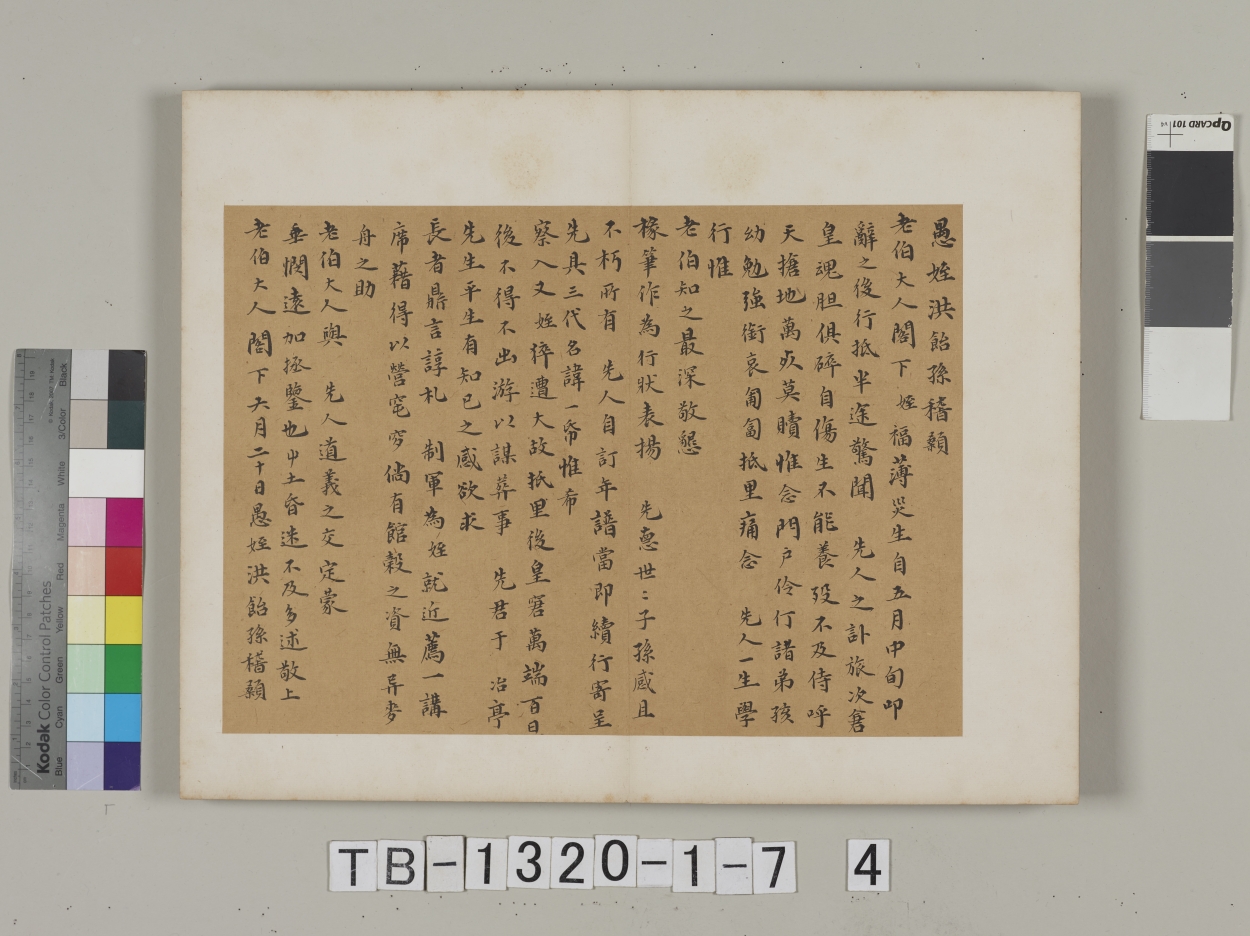 愚姪洪飴孫稽顙
老伯大人閣下姪福薄災生自五月中旬叩
辭之後行抵半途驚聞 先人之訃旅次倉
皇魂胆俱碎自傷生不能養歿不及侍呼
天搶地萬死莫贖惟念門戶伶仃諸弟孩
幼勉強銜哀匍匐抵里痛念 先人一生學
行惟
老伯知之最深敬懇
椽筆作為行狀表揚 先悳世〻子孫感且
不朽所有 先人自訂年譜當即續行寄呈
先具三代名諱一帋惟希
察入又姪猝遭大故抵里後皇窘萬端百日
後不得不出游以謀葬事 先君于 冶亭
先生平生有知己之感欲求
長者鼎言諄札 制軍為姪就近薦一講
席藉得以營窀穸倘有館穀之資無異麥
舟之助
老伯大人與 先人道義之交定蒙
垂憫遠加拯鑒也中土昏迷不及多述敬上
老伯大人閣下六月二十日愚姪洪飴孫稽顙
TB-1320-1-7 4
QPCARD 101 v4
Kodak Color Control Patches
Blue Cyan Green Yellow Red Magenta White 3/Color Black